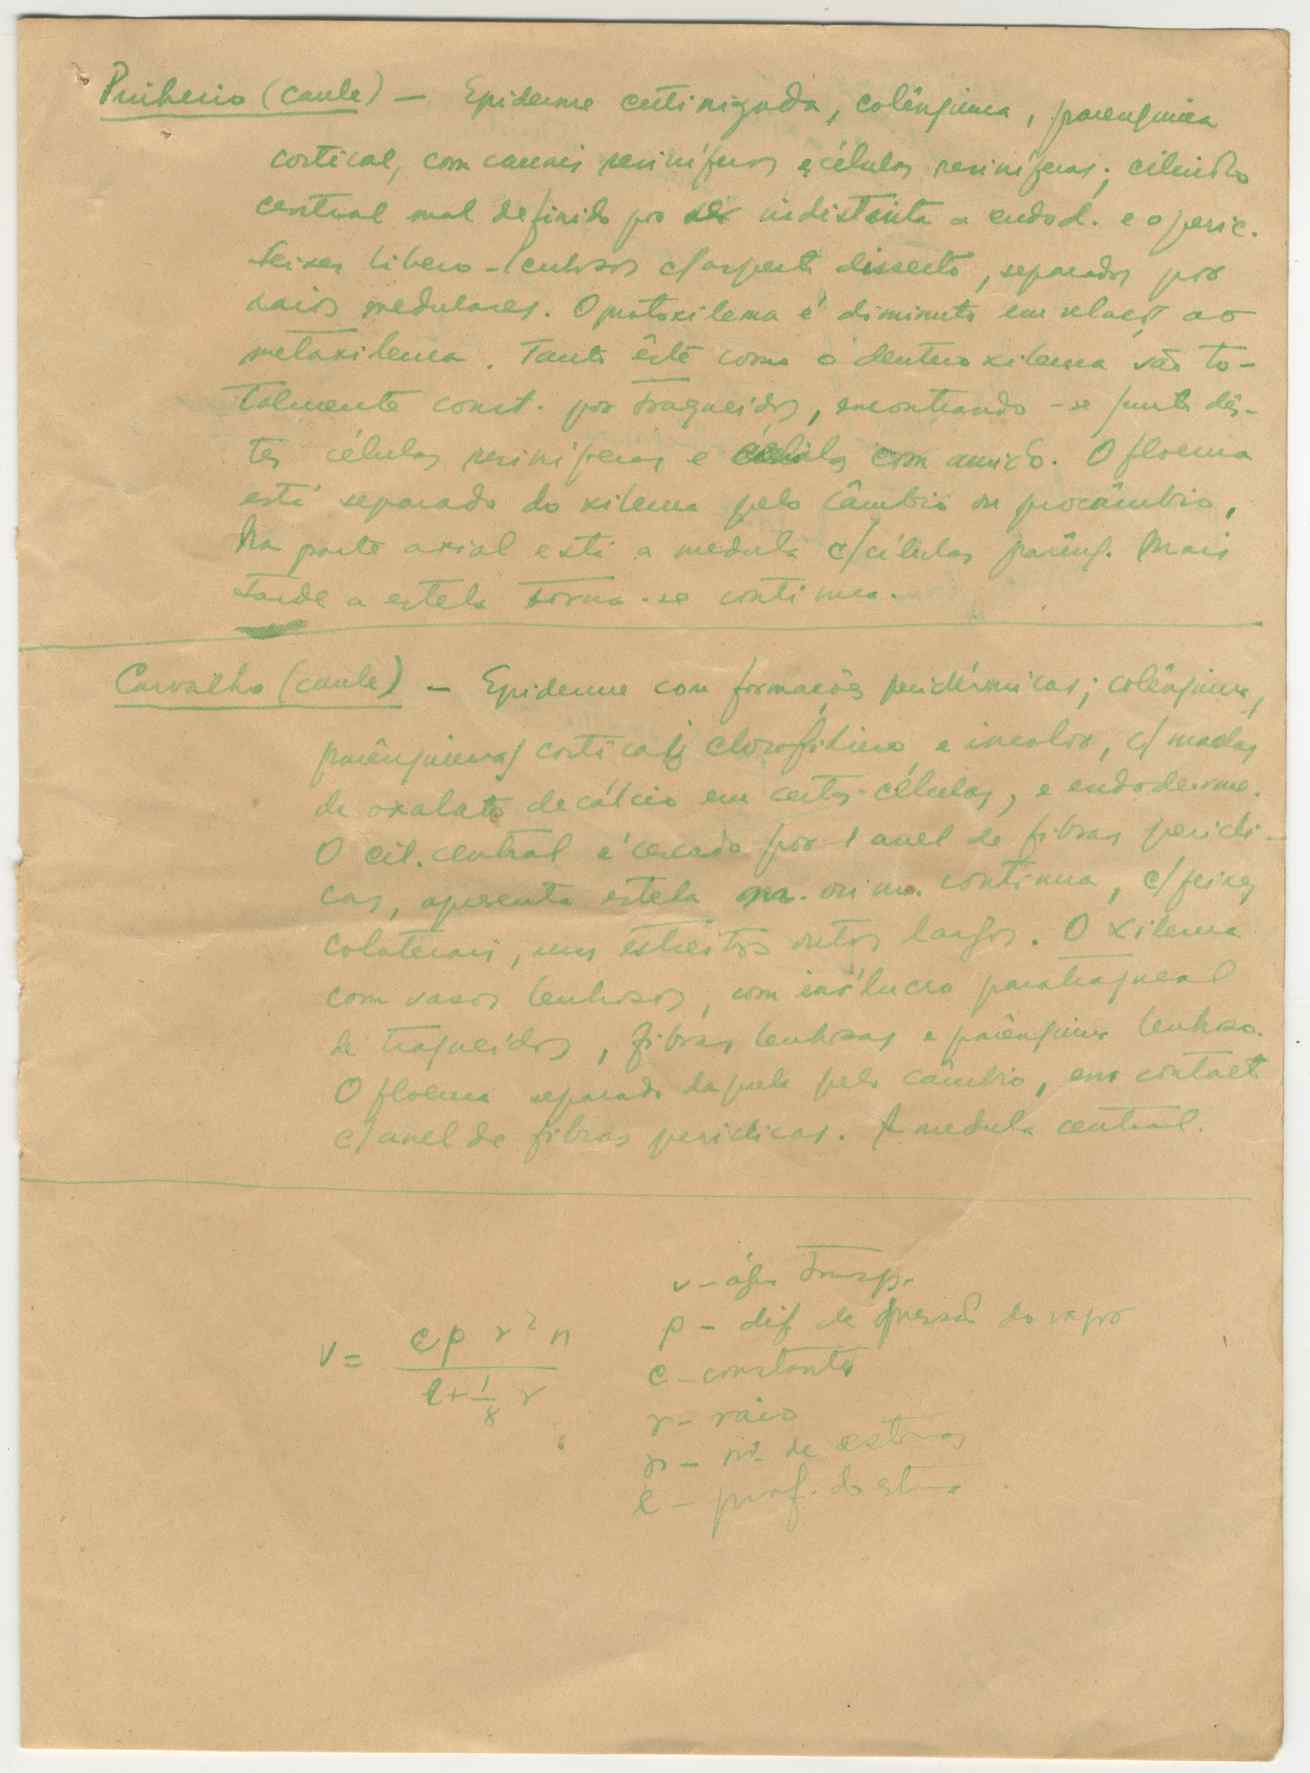 Pinheiro (caule) — Epiderme cutinizada, colênquima, parenquima
cortical, com canais resiníferos e células resiníferas; cilindro
central mal definido por ser indistinta a endod. e o peric.
Feixes libero-lenhosos c/ aspecto disserto, separados por
raios medulares. O protoxilema é diminuto em relação ao
metaxilema. Tanto êste como o deuteroxilema são to-
talmente const. por traqueidos, encontrando-se junto dês-
tes células resiníferas e células com amido. O floema
está separado do xilema pelo câmbio ou procâmbio,
Na parte axial está a medula c/ células parênq. Mais
tarde a estela torna-se contínua.
Carvalho (caule) — Epiderme com formações peridérmicas; colênquima,
parênquima cortical clorofilino e incolor, c/ maclas
de oxalato de cálcio em certas células, e endoderme.
O cil. central é cercado por 1 anel de fibras pericí-
cas, apresenta estela contínua, c/ feixes
colaterais, uns estreitos outros largos. O xilema
com vasos lenhosos, com invólucro paratraqueal
de traqueidos, fibras lenhosas e parênquima lenhoso.
O floema separado daquele pelo câmbio, em contacto
c/ anel de fibras pericíclicas. A medula central.
v – água transp.
p – dif. de pressão do vapor
v = c p r² n / l + 1/8 r
c – constante
r – raio
n – nº de estomas
l – prof. do estoma